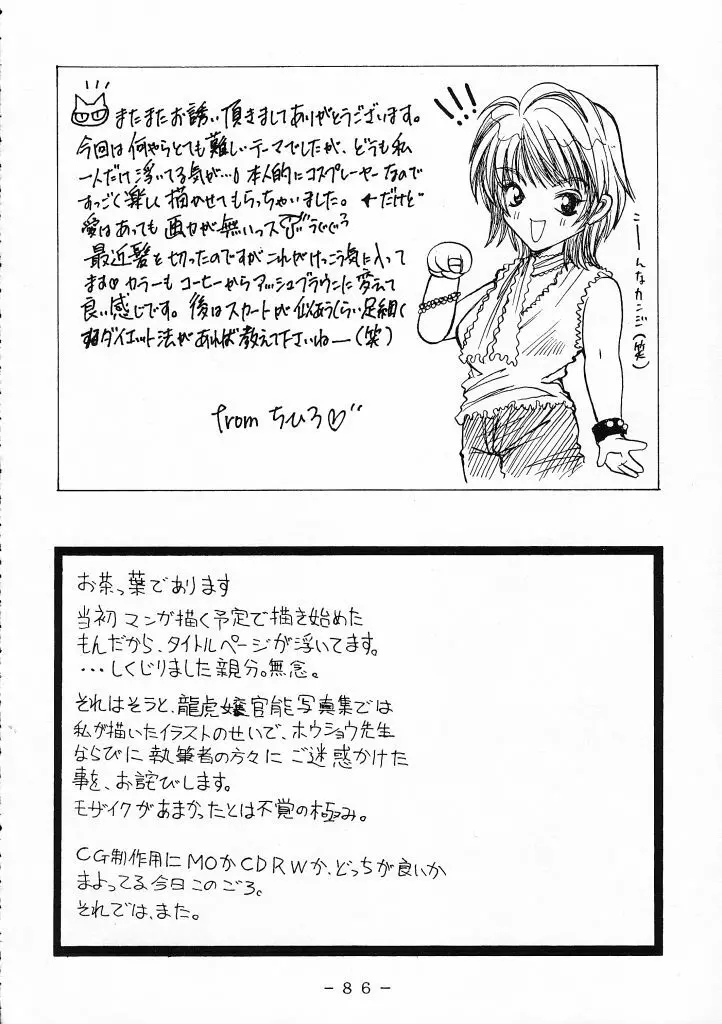 またまたお誘い頂きましてありがとうございます。
今回は何やらとても難しいテーマでしたが、どうも私
一人だけ浮いてる気が…！本人的にコスプレーヤーなので
すっごく楽しく描かせてもらっちゃいました。←だけど
愛はあっても画力が無いっス
最近髪を切ったのですがこれがけっこう気に入って
ます♡カラーもコーヒーからアッシュブラウンに変えて
良い感じです。後はスカートが似合うくらい足細く
するダイエット法があれば教えて下さいねー(笑)
from ちひろ♡
!!!
こーんなカンジ(笑)
お茶っ葉であります
当初マンガ描く予定で描き始めた
もんだから、タイトルページが浮いてます。
・・・しくじりました親分。無念。
それはそうと、龍虎嬢官能写真集では
私が描いたイラストのせいで、ホウショウ先生
ならびに執筆者の方々にご迷惑かけた
事を、お詫びします。
モザイクがあまかったとは不覚の極み。
CG制作用にMOかCDRWか、どっちが良いか
まよってる今日このごろ。
それでは、また。
- 86 -